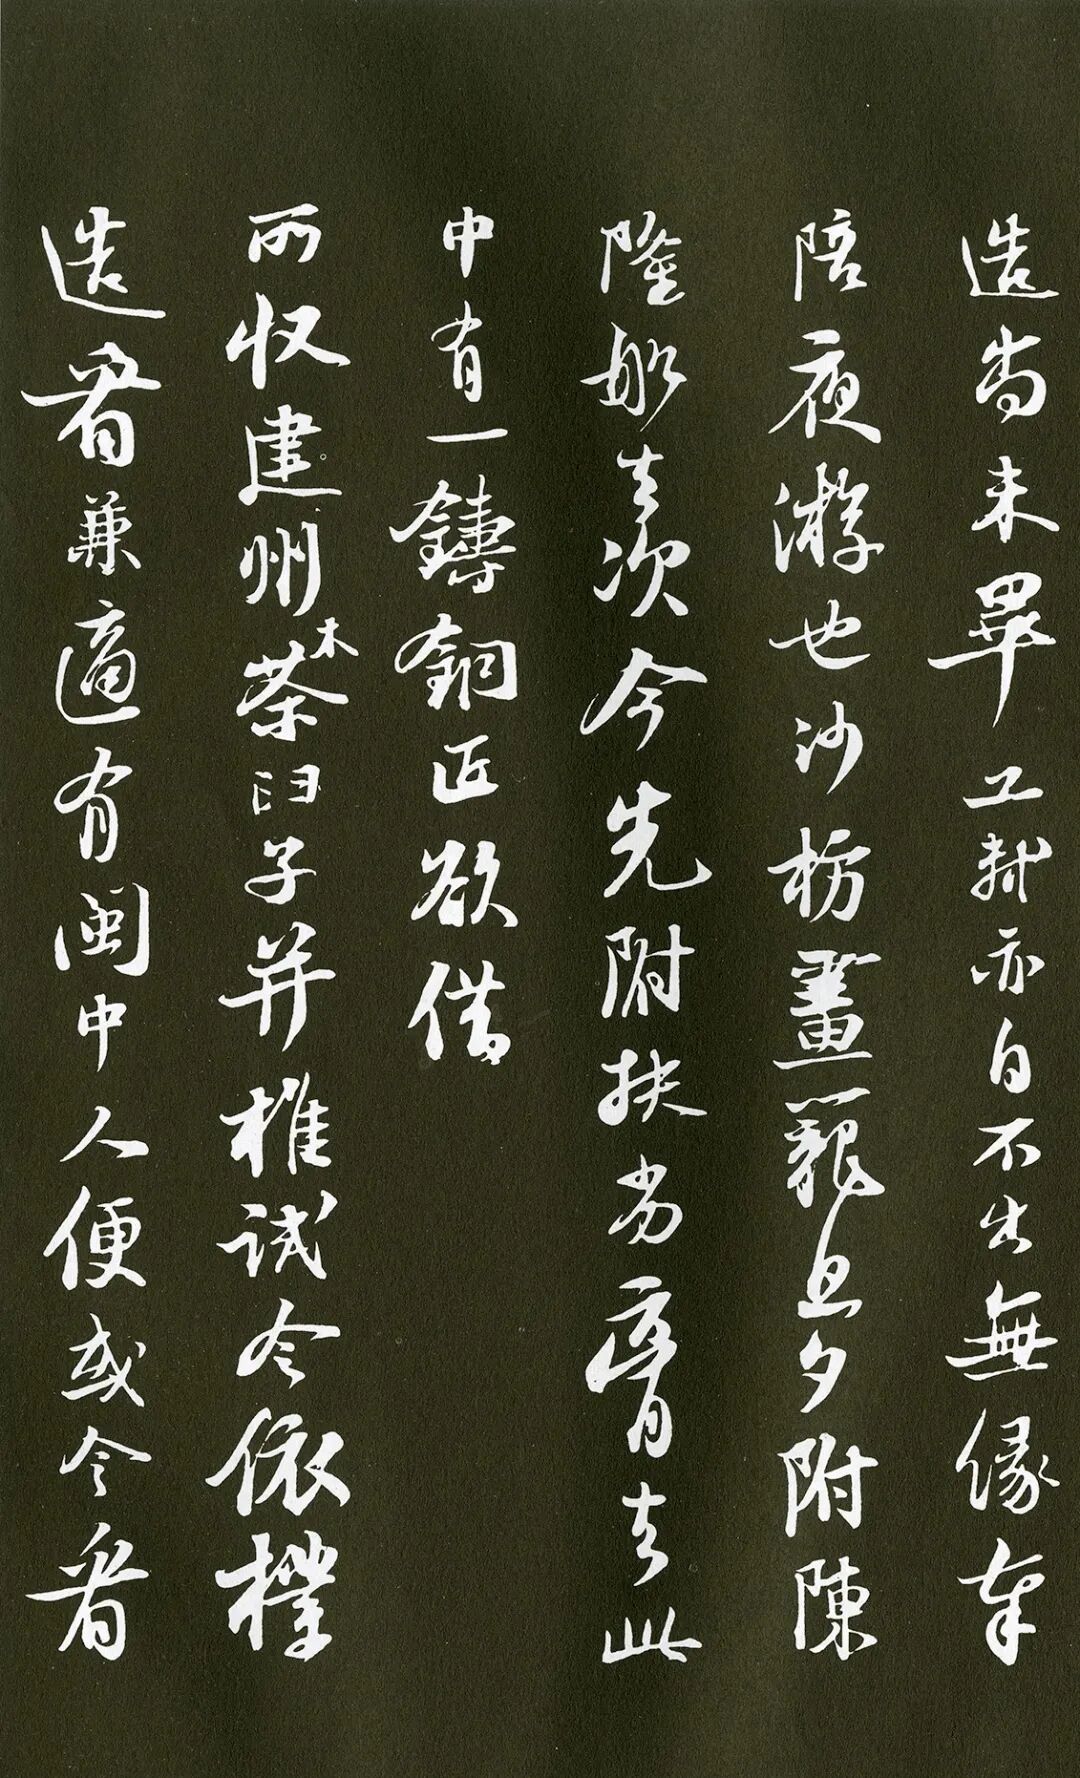 造尚未畢工軾亦自不出無緣奉
陪夜遊也沙枋畫籠旦夕附陳
隆船去次今先附扶劣膏去此
中有一鑄銅匠欲借
所收建州木茶臼子并椎試令依樣
造看兼適有閩中人便或令看